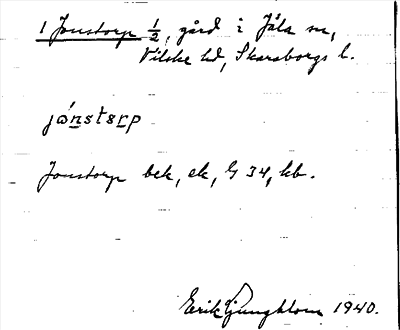 1 Jonstorp 1/2, gård i Jäla sn,
Vilske hd, Skaraborgs l.
jónstɛrp
Jonstorp bek, ek, G 34, kb.
Erik Ljungblom 1940.